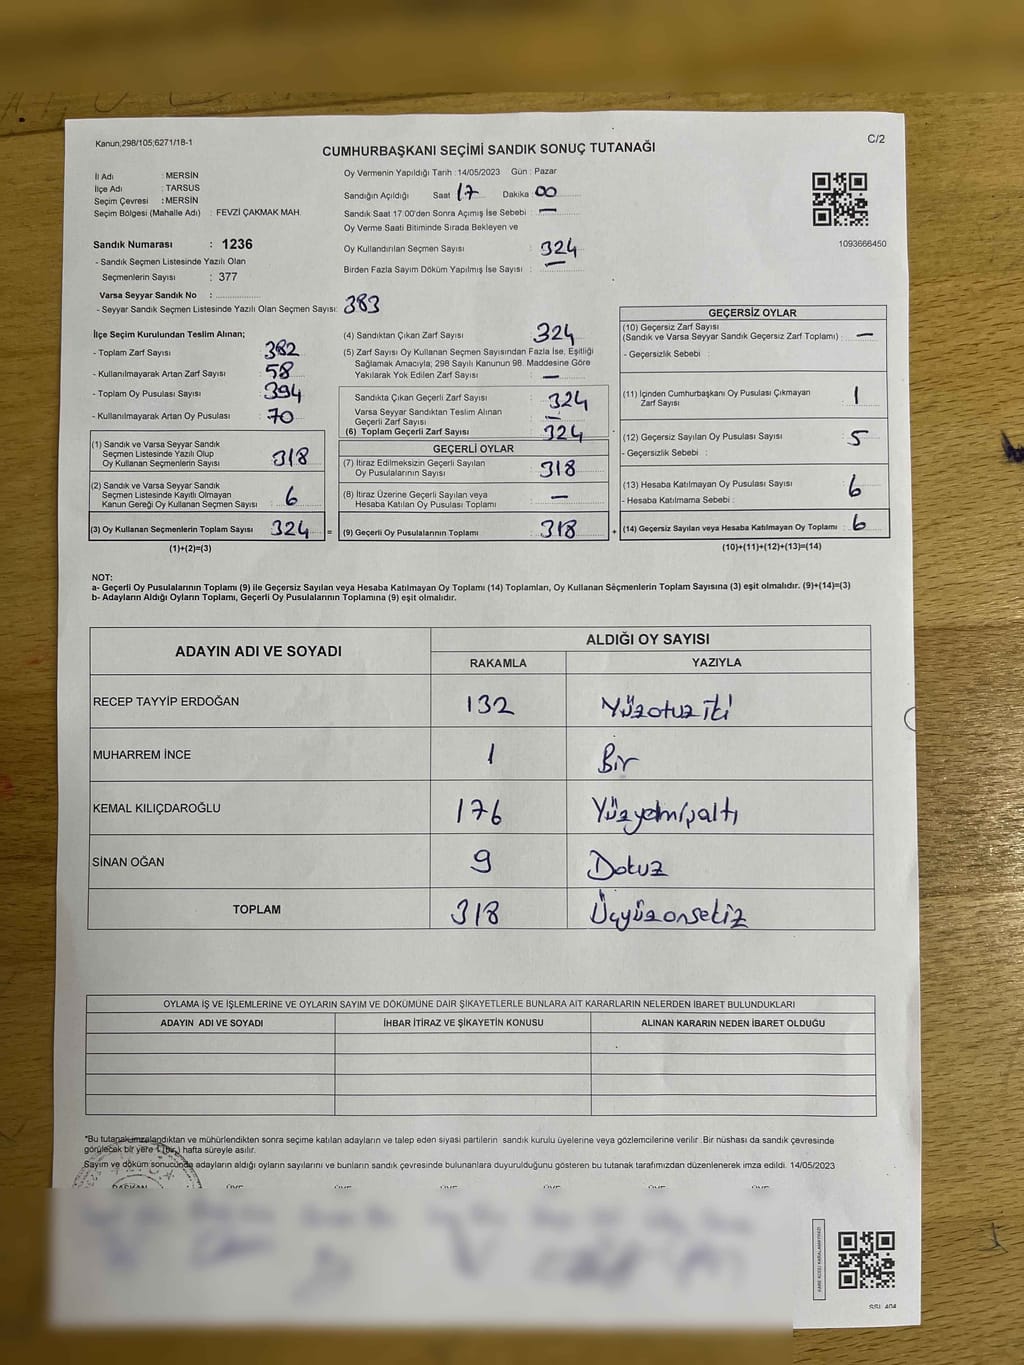 Kanun;298/105;6271/18-1
C/2
CUMHURBAŞKANI SEÇİMİ SANDIK SONUÇ TUTANAĞI
İl Adı : MERSİN
İlçe Adı : TARSUS
Seçim Çevresi : MERSİN
Seçim Bölgesi (Mahalle Adı) : FEVZİ ÇAKMAK MAH.
Sandık Numarası : 1236
- Sandık Seçmen Listesinde Yazılı Olan
Seçmenlerin Sayısı : 377
Varsa Seyyar Sandık No :
- Seyyar Sandık Seçmen Listesinde Yazılı Olan Seçmen Sayısı: 383
Oy Vermenin Yapıldığı Tarih :14/05/2023 Gün : Pazar
Sandığın Açıldığı Saat 17 Dakika 00
Sandık Saat 17:00'den Sonra Açımış İse Sebebi : —
Oy Verme Saati Bitiminde Sırada Bekleyen ve
Oy Kullandırılan Seçmen Sayısı 324
Birden Fazla Sayım Döküm Yapılmış İse Sayısı : —
1093666450
İlçe Seçim Kurulundan Teslim Alınan;
- Toplam Zarf Sayısı : 382
- Kullanılmayarak Artan Zarf Sayısı : 58
- Toplam Oy Pusulası Sayısı : 394
- Kullanılmayarak Artan Oy Pusulası : 70
(1) Sandık ve Varsa Seyyar Sandık
Seçmen Listesinde Yazılı Olup
Oy Kullanan Seçmenlerin Sayısı : 318
(2) Sandık ve Varsa Seyyar Sandık
Seçmen Listesinde Kayıtlı Olmayan
Kanun Gereği Oy Kullanan Seçmen Sayısı : 6
(3) Oy Kullanan Seçmenlerin Toplam Sayısı : 324 =
(1)+(2)=(3)
(4) Sandıktan Çıkan Zarf Sayısı : 324
(5) Zarf Sayısı Oy Kullanan Seçmen Sayısından Fazla İse, Eşitliği
Sağlamak Amacıyla; 298 Sayılı Kanunun 98. Maddesine Göre
Yakılarak Yok Edilen Zarf Sayısı : —
Sandıkta Çıkan Geçerli Zarf Sayısı : 324
Varsa Seyyar Sandıktan Teslim Alınan
Geçerli Zarf Sayısı : —
(6) Toplam Geçerli Zarf Sayısı : 324
GEÇERLİ OYLAR
(7) İtiraz Edilmeksizin Geçerli Sayılan
Oy Pusulalarının Sayısı : 318
(8) İtiraz Üzerine Geçerli Sayılan veya
Hesaba Katılan Oy Pusulası Toplamı : —
(9) Geçerli Oy Pusulalarının Toplamı : 318 +
GEÇERSİZ OYLAR
(10) Geçersiz Zarf Sayısı
(Sandık ve Varsa Seyyar Sandık Geçersiz Zarf Toplamı) : —
- Geçersizlik Sebebi :
(11) İçinden Cumhurbaşkanı Oy Pusulası Çıkmayan
Zarf Sayısı : 1
(12) Geçersiz Sayılan Oy Pusulası Sayısı : 5
- Geçersizlik Sebebi :
(13) Hesaba Katılmayan Oy Pusulası Sayısı : 6
- Hesaba Katılmama Sebebi :
(14) Geçersiz Sayılan veya Hesaba Katılmayan Oy Toplamı : 6
(10)+(11)+(12)+(13)=(14)
NOT:
a- Geçerli Oy Pusulalarının Toplamı (9) ile Geçersiz Sayılan veya Hesaba Katılmayan Oy Toplamı (14) Toplamları, Oy Kullanan Seçmenlerin Toplam Sayısına (3) eşit olmalıdır. (9)+(14)=(3)
b- Adayların Aldığı Oyların Toplamı, Geçerli Oy Pusulalarının Toplamına (9) eşit olmalıdır.
ADAYIN ADI VE SOYADI
ALDIĞI OY SAYISI
RAKAMLA YAZIYLA
RECEP TAYYİP ERDOĞAN 132 Yüzotuz iki
MUHARREM İNCE 1 Bir
KEMAL KILIÇDAROĞLU 176 Yüzyetmişaltı
SİNAN OĞAN 9 Dokuz
TOPLAM 318 Üçyüzonsekiz
OYLAMA İŞ VE İŞLEMLERİNE VE OYLARIN SAYIM VE DÖKÜMÜNE DAİR ŞİKAYETLERLE BUNLARA AİT KARARLARIN NELERDEN İBARET BULUNDUKLARI
ADAYIN ADI VE SOYADI İHBAR İTİRAZ VE ŞİKAYETİN KONUSU ALINAN KARARIN NEDEN İBARET OLDUĞU
*Bu tutanak imzalandıktan ve mühürlendikten sonra seçime katılan adayların ve talep eden siyasi partilerin sandık kurulu üyelerine veya gözlemcilerine verilir. Bir nüshası da sandık çevresinde
görülecek bir yere 1 (Bir) hafta süreyle asılır.
Sayım ve döküm sonucunda adayların aldığı oyların sayılarını ve bunların sandık çevresinde bulunanlara duyurulduğunu gösteren bu tutanak tarafımızdan düzenlenerek imza edildi. 14/05/2023
BAŞKAN ÜYE ÜYE ÜYE ÜYE ÜYE ÜYE